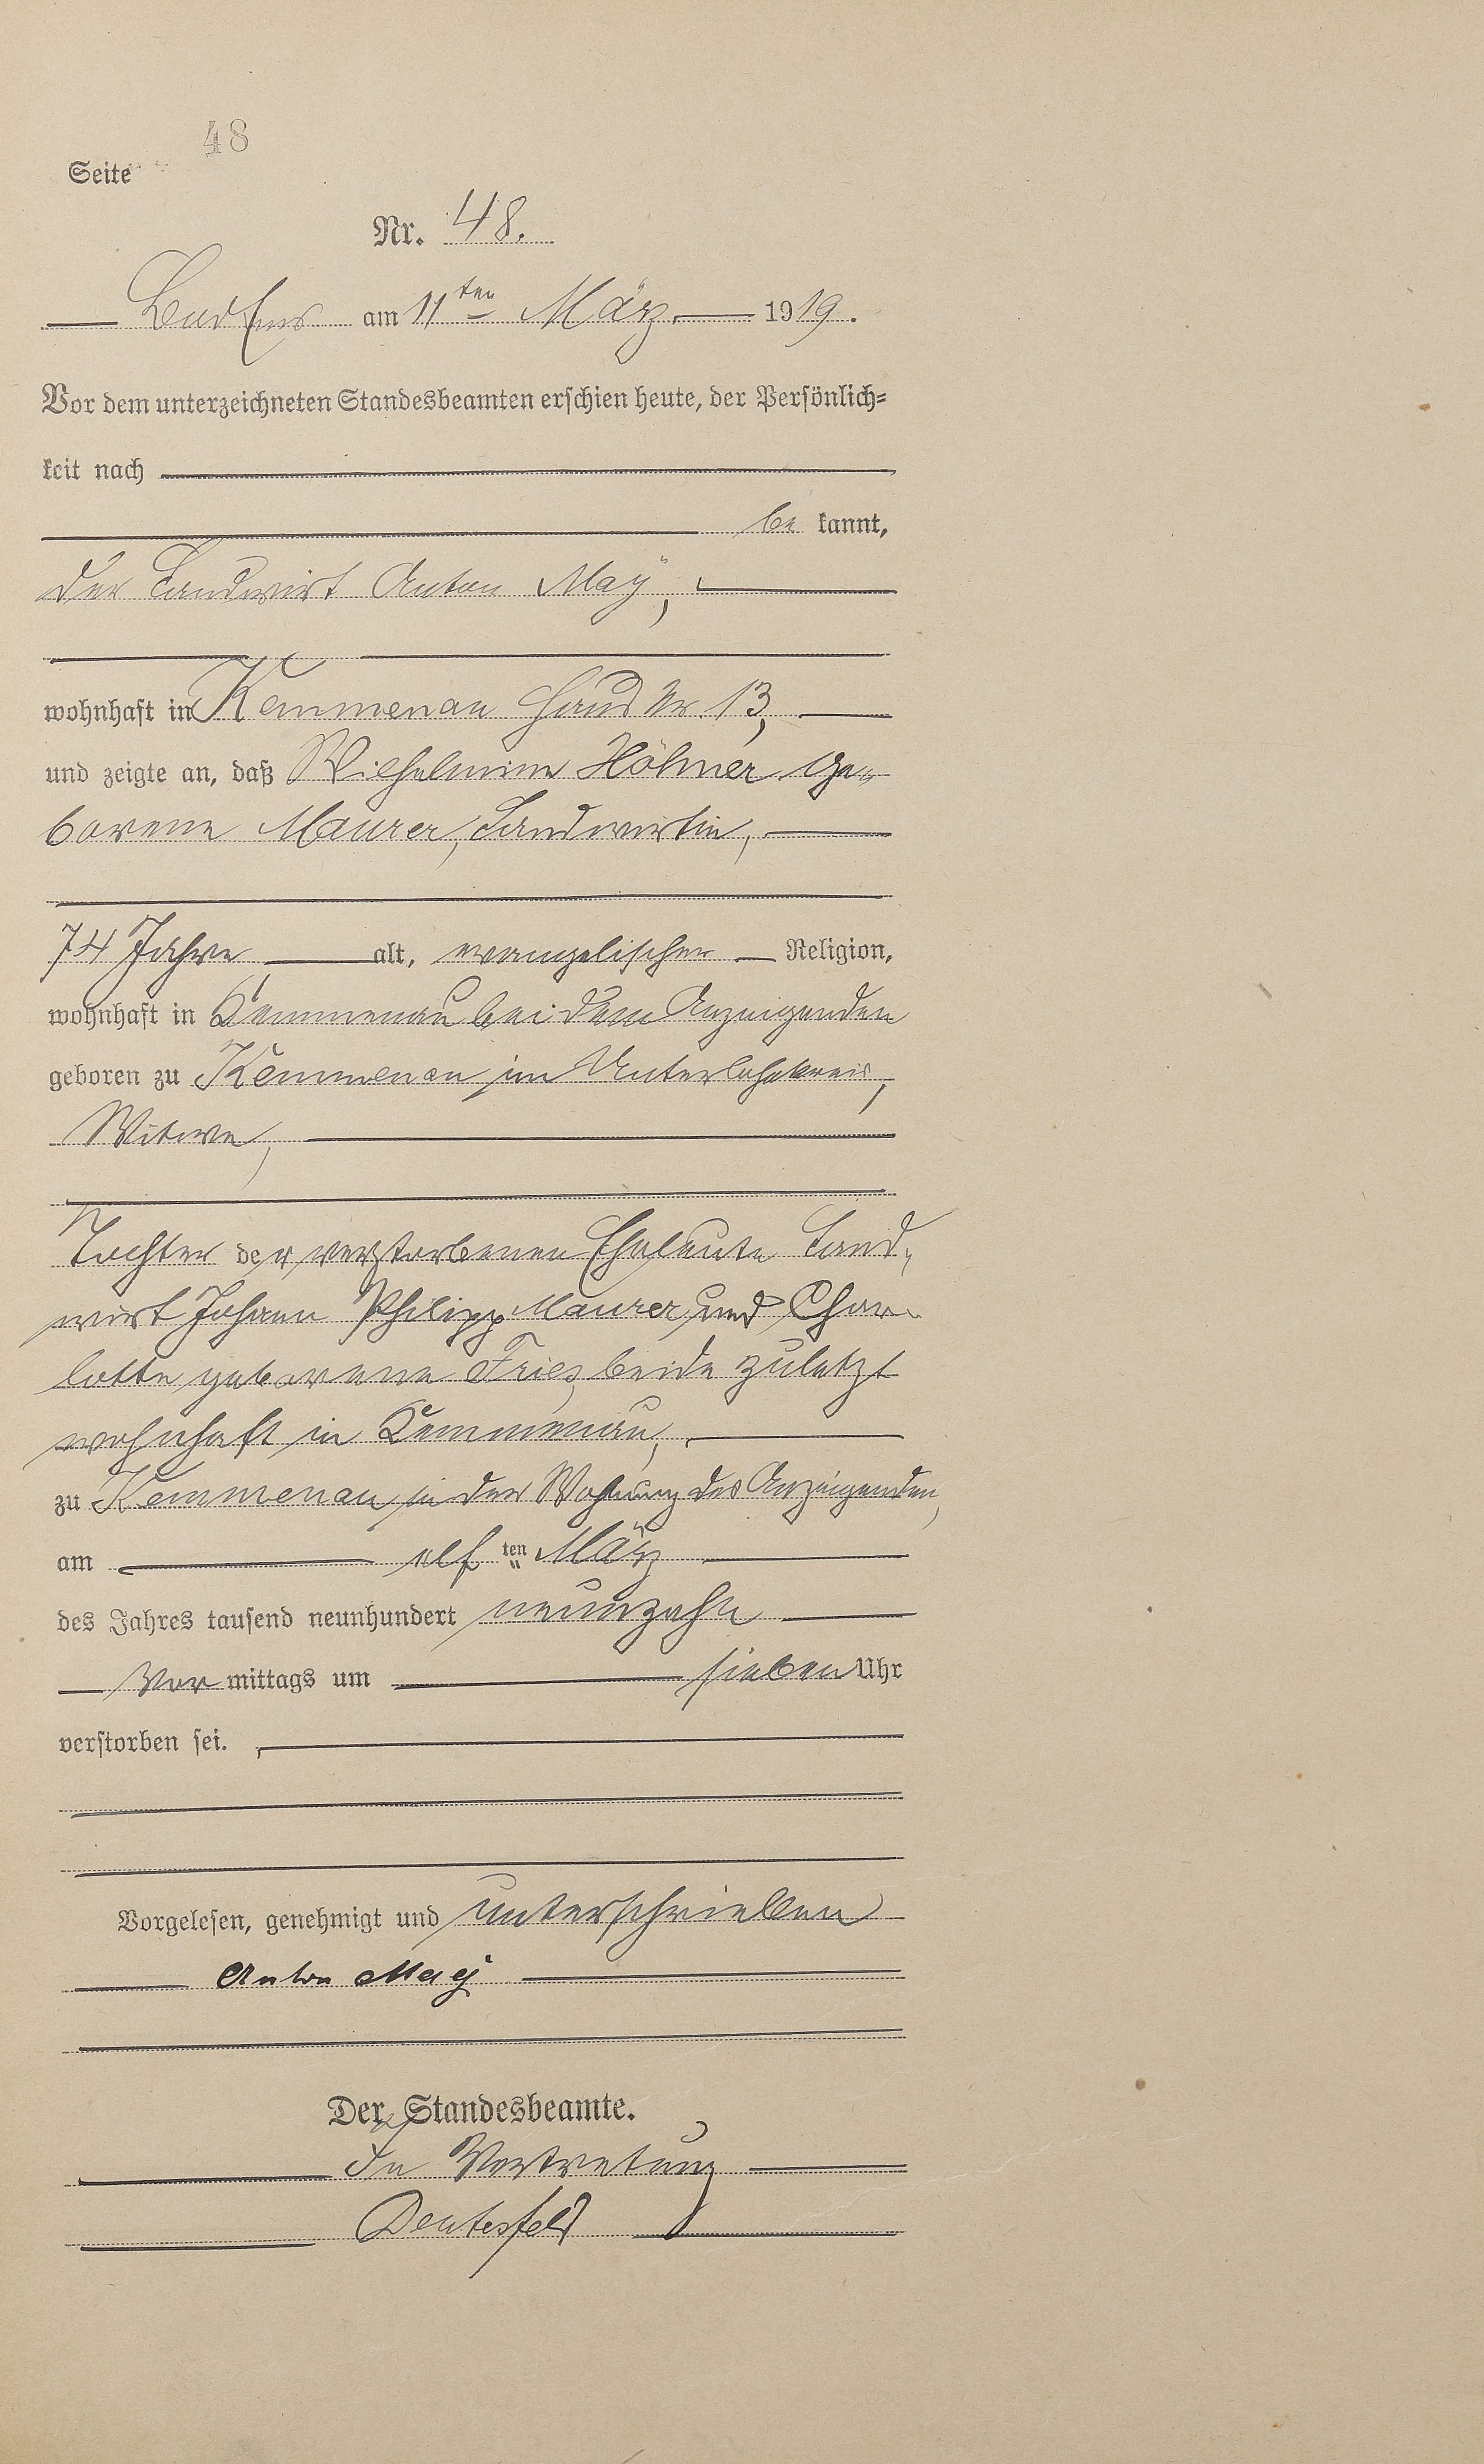 48
Seite
Nr. 48.
Bad Ems am 11ten März 1919.
Vor dem unterzeichneten Standesbeamten erschien heute, der Persönlich-
keit nach
be kannt,
der Landwirt Anton Maÿ,
wohnhaft in Kemmenau Haus Nr. 13,
und zeigte an, daß Wilhelmine Höhner ge-
borene Maurer, Landwirtin,
74 Jahre alt, evangelischer Religion,
wohnhaft in Kemmenau bei dem Anzeigenden
geboren zu Kemmenau im Unterlahnkreis,
Witwe,
Tochter der verstorbenen Eheleute Land-
wirt Johann Philipp Maurer und Char-
lotte geborene Fries, beide zuletzt
wohnhaft in Kemmenau,
zu Kemmenau in der Wohnung des Anzeigenden,
am elf ten März
des Jahres tausend neunhundert neunzehn
Vor mittags um sieben Uhr
verstorben sei.
Vorgelesen, genehmigt und unterschrieben
Anton Maÿ
Der Standesbeamte.
In Vertretung